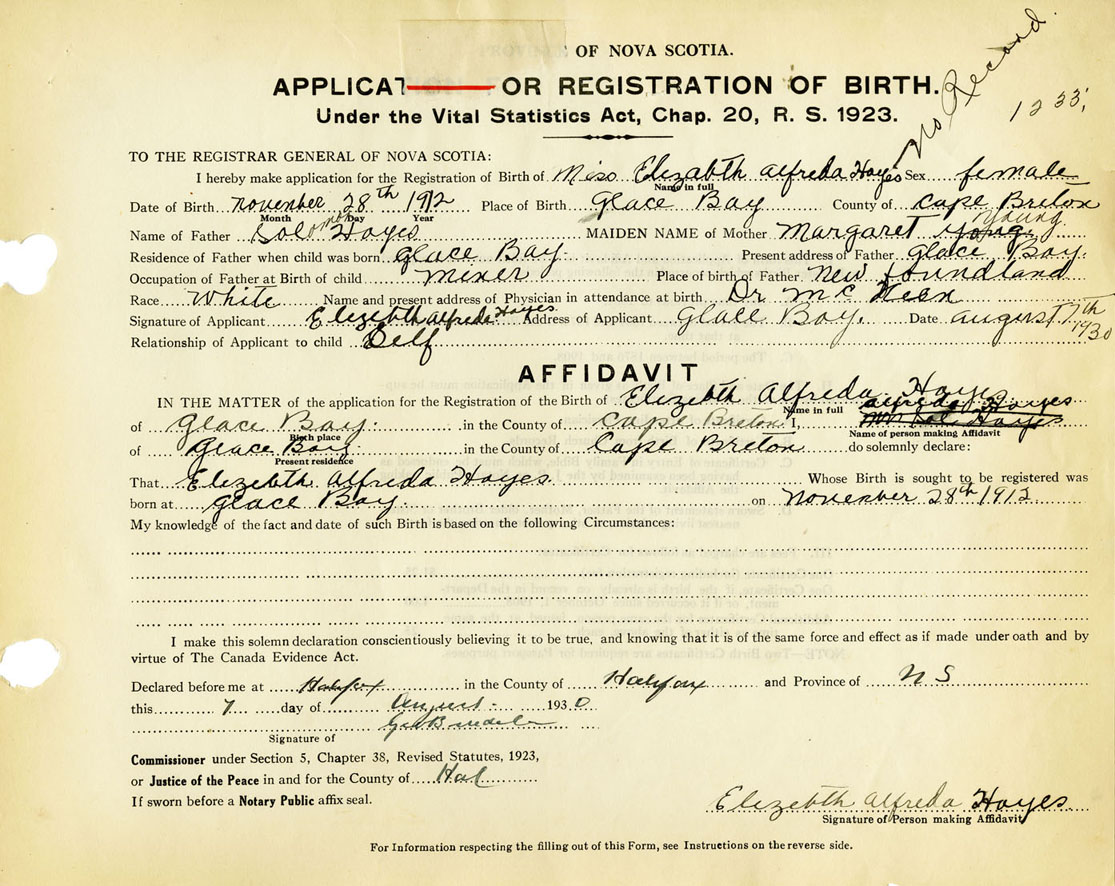 OF NOVA SCOTIA.
APPLICAT OR REGISTRATION OF BIRTH.
Under the Vital Statistics Act, Chap. 20, R. S. 1923.
No Record
1233
TO THE REGISTRAR GENERAL OF NOVA SCOTIA:
I hereby make application for the Registration of Birth of Miss Elizabth Alfreda Hayes Sex female
Name in full
Date of Birth November 28th 1912 Place of Birth Glace Bay County of Cape Breton
Month Day Year
Name of Father Solomon Hayes MAIDEN NAME of Mother Margaret Yong. Young
Residence of Father when child was born Glace Bay. Present address of Father Glace Bay.
Occupation of Father at Birth of child Miner Place of birth of Father New foundland
Race White Name and present address of Physician in attendance at birth Dr Mc Keen
Signature of Applicant Elizebth Alfreda Hayes Address of Applicant Glace Bay. Date August 7th 1930
Relationship of Applicant to child Self
AFFIDAVIT
IN THE MATTER of the application for the Registration of the Birth of Elizebth Alfreda Hayes
Name in full
of Glace Bay. in the County of Cape Breton I, Alfreda Hayes Mrs Sol Hayes
Birth place
Name of person making Affidavit
of Glace Bay in the County of Cape Breton do solemnly declare:
Present residence
That Elizebth Alfreda Hayes. Whose Birth is sought to be registered was
born at Glace Bay. on November 28th 1912
My knowledge of the fact and date of such Birth is based on the following Circumstances:
I make this solemn declaration conscientiously believing it to be true, and knowing that it is of the same force and effect as if made under oath and by
virtue of The Canada Evidence Act.
Declared before me at Halifax in the County of Halifax and Province of N S
this 7 day of August 1930
Signature of
Commissioner under Section 5, Chapter 38, Revised Statutes, 1923,
or Justice of the Peace in and for the County of Hal
If sworn before a Notary Public affix seal.
Elizebth Alfreda Hayes
Signature of Person making Affidavit
For Information respecting the filling out of this Form, see Instructions on the reverse side.